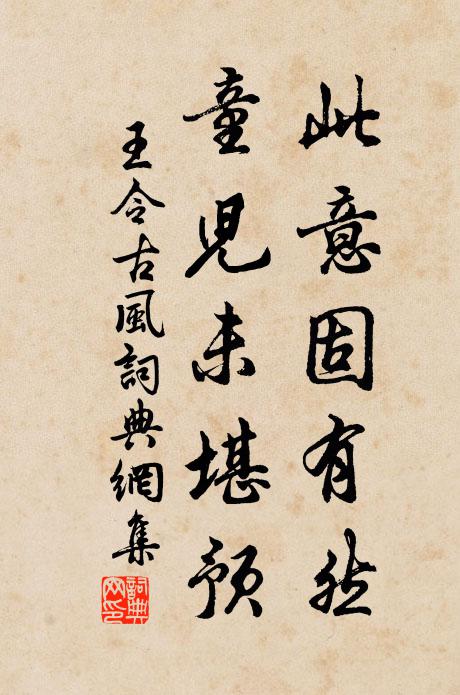 此意固有然
童兒未堪預
王令古風詞典網集
詞典網印